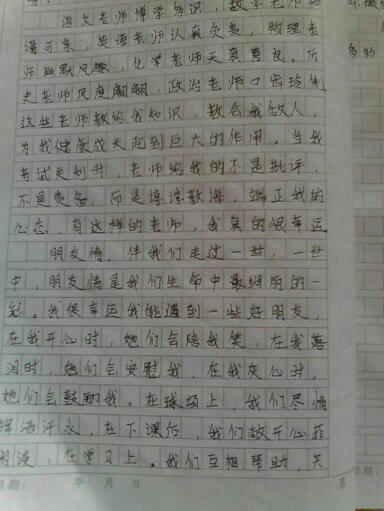 语文老师博学多识，数学老师和
蔼可亲，英语老师认真负责，物理老
师幽默风趣，化学老师天真善良。历
史老师风度翩翩，政治老师口齿伶俐
这些老师教给我知识，教会我做人，
为我健康成长起到巨大的作用。当我
考试失利时，老师给我的不是批评，
不是责备，而是谆谆教诲，端正我的
心态，有这样的老师，我真的很幸运
朋友情，伴我们走过一世，一世
中，朋友情是我们生命中最绚丽的一
笔。我很幸运我能遇到一些好朋友，
在我开心时，她们会陪我笑，在我落
泪时，她们会安慰我，在我灰心时，
她们会鼓励我。在球场上，我们尽情
挥洒汗水，在下课后，我们敞开心扉
在学习上。我们互相帮助，共
年 月 日
第
多物